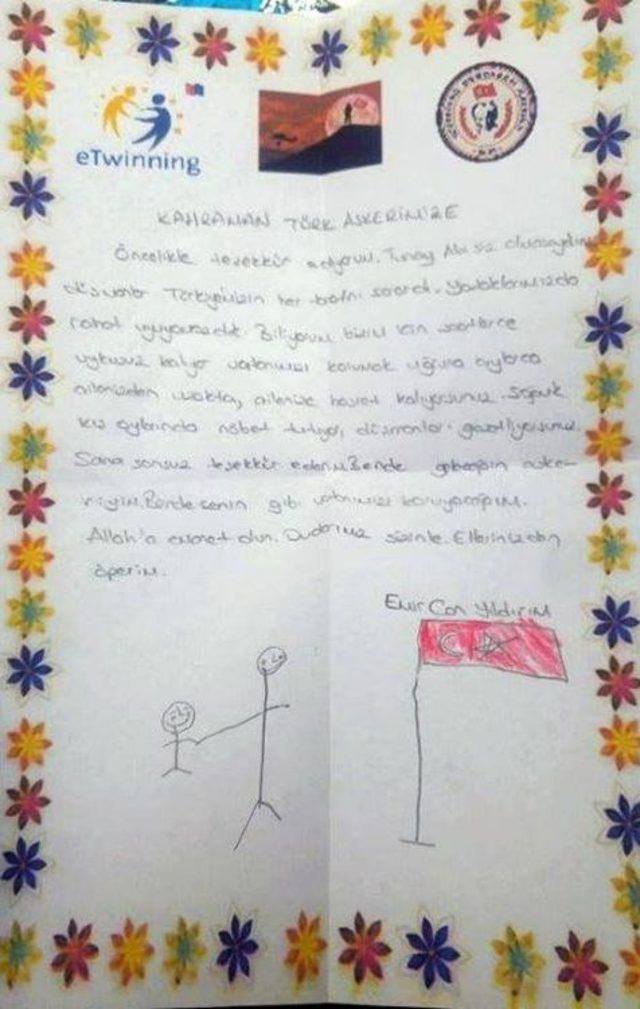 eTwinning
KAHRAMAN TÜRK ASKERİMİZE
Öncelikle teşekkür ediyorum. Tunay Abi siz olmasaydınız
düşmanlar Türkiyemizin her tarafını sarardı. Yataklarımızda
rahat uyuyamazdık. Biliyorum bizim için saatlerce
uykusuz kalıyor vatanımızı korumak uğruna aylarca
ailenizden uzakta, ailenize hasret kalıyorsunuz. Soğuk
kış aylarında nöbet tutuyor, düşmanları gözetliyorsunuz.
Sana sonsuz teşekkür ederim. Bende geleceğin aske-
riyim. Bende senin gibi vatanımızı koruyacağım.
Allah'a emanet olun. Dualarımız sizinle. Ellerinizden
öperim.
Emir Can Yıldırım